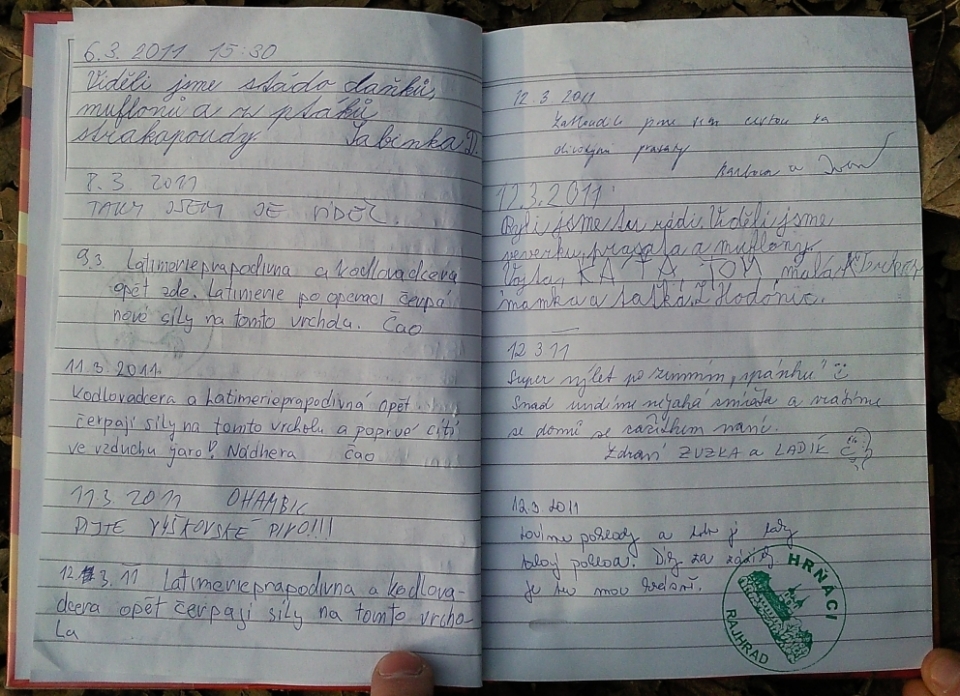 6.3. 2011 15:30
Viděli jsme stádo daňků,
muflonů a z ptáků
strakapoudy. Sabinka D.
8.3. 2011
TAKY JSEM JE VIDĚL.
9.3. Latimerieprapodivna a kodlovadcera
opět zde. Latimerie po operaci čerpá
nové síly na tomto vrcholu. Čao
11.3.2011.
Kodlovadcera a Latimerieprapodivná opět
čerpají síly na tomto vrcholu a poprvé cítí
ve vzduchu jaro! Nádhera čao
11.3 2011 OHAMBIC
PIJTE VYŠKOVSKÉ PIVO!!!
12.3. 11 Latimerieprapodivna a kodlova-
dcera opět čerpají síly na tomto vrcho-
la
12.3 2011
jsme cestou za
divokými prasaty
Barbora a Ivan
12.3.2011
Byli jsme tu rádi. Viděli jsme
veverku, prasata a muflony.
Vojta, KÁŤA TOM malá
mamka a taťka z Hodonic.
12 3 11
Super výlet po zimním „spánku“
Snad uvidíme nějaká zvířata a vrátíme
se domů se zážitkem
Zdraví ZUZKA a LADIK
12.3 2011
Lovíme poklady a tohle je taky
poklad. Díky za zážitky
je tu moc krásně.
HRŇÁCI
RAJHRAD